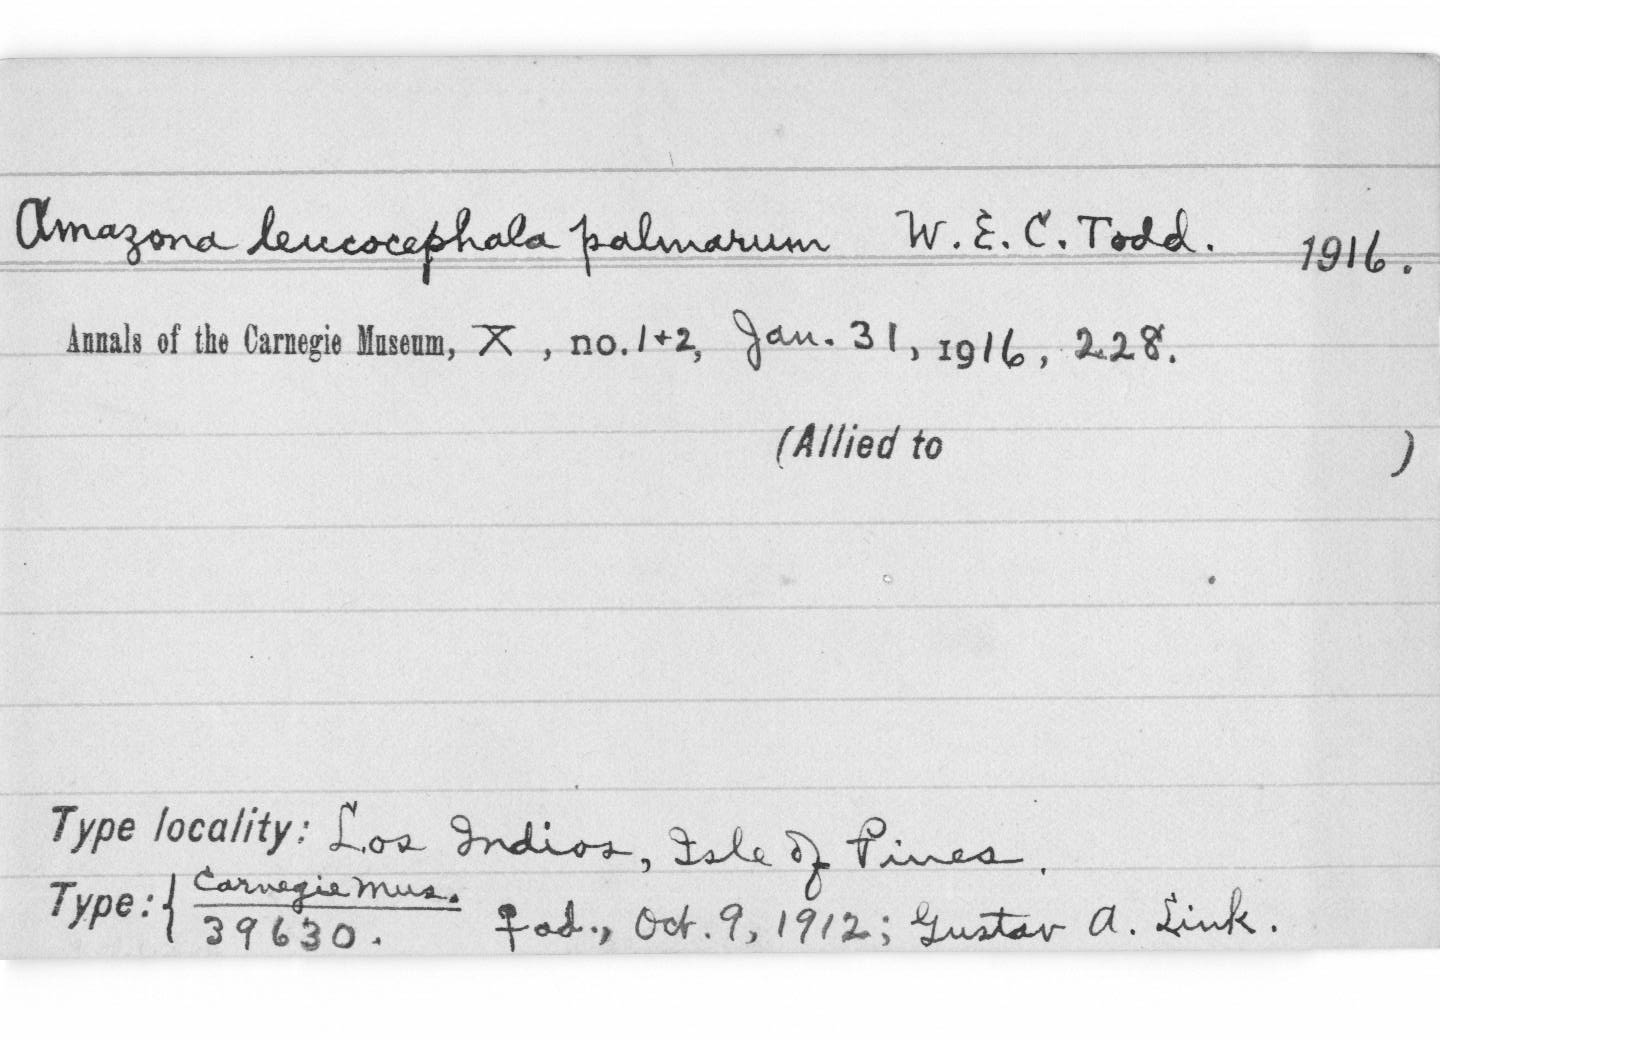 Amazona leucocephala palmarum W. E. C. Todd. 1916.
Annals of the Carnegie Museum, X, no. 1+2, Jan. 31, 1916, 228.
(Allied to )
Type locality: Los Indios, Isle of Pines.
Type: { Carnegie Mus.
39630. ♀ ad., Oct. 9, 1912; Gustav A. Link.